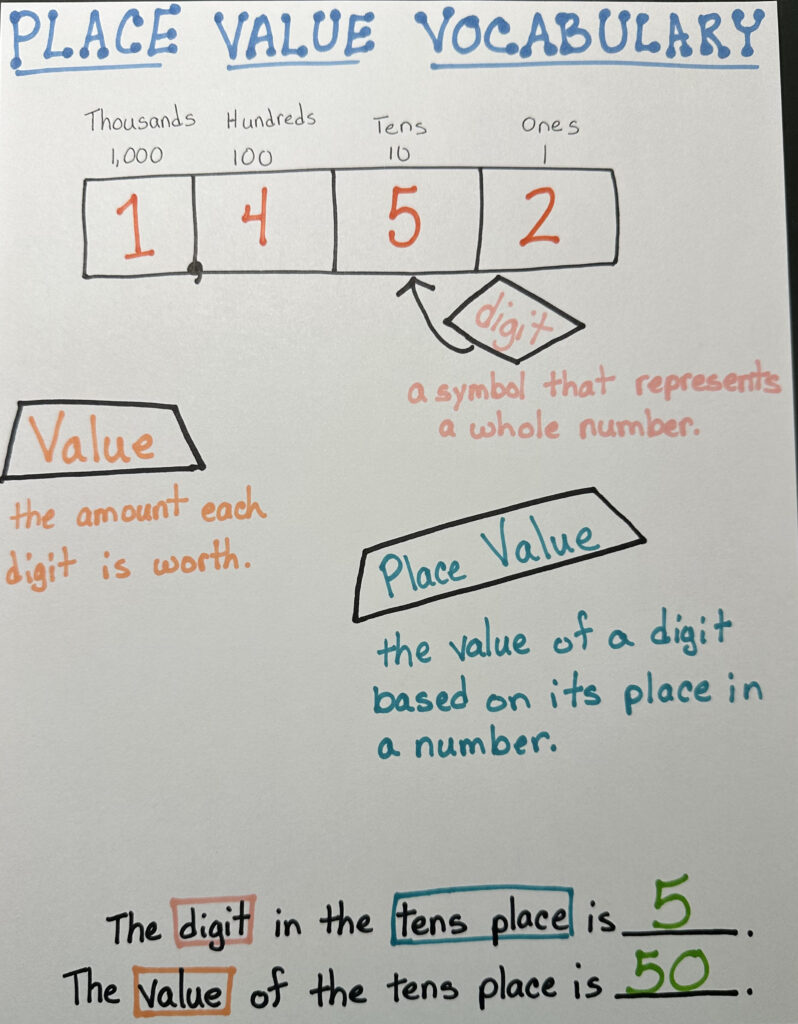 PLACE VALUE VOCABULARY
Thousands Hundreds Tens Ones
1,000 100 10 1
1, 4 5 2
digit
a symbol that represents
a whole number.
Value
the amount each
digit is worth.
Place Value
the value of a digit
based on its place in
a number.
The digit in the tens place is 5.
The value of the tens place is 50.